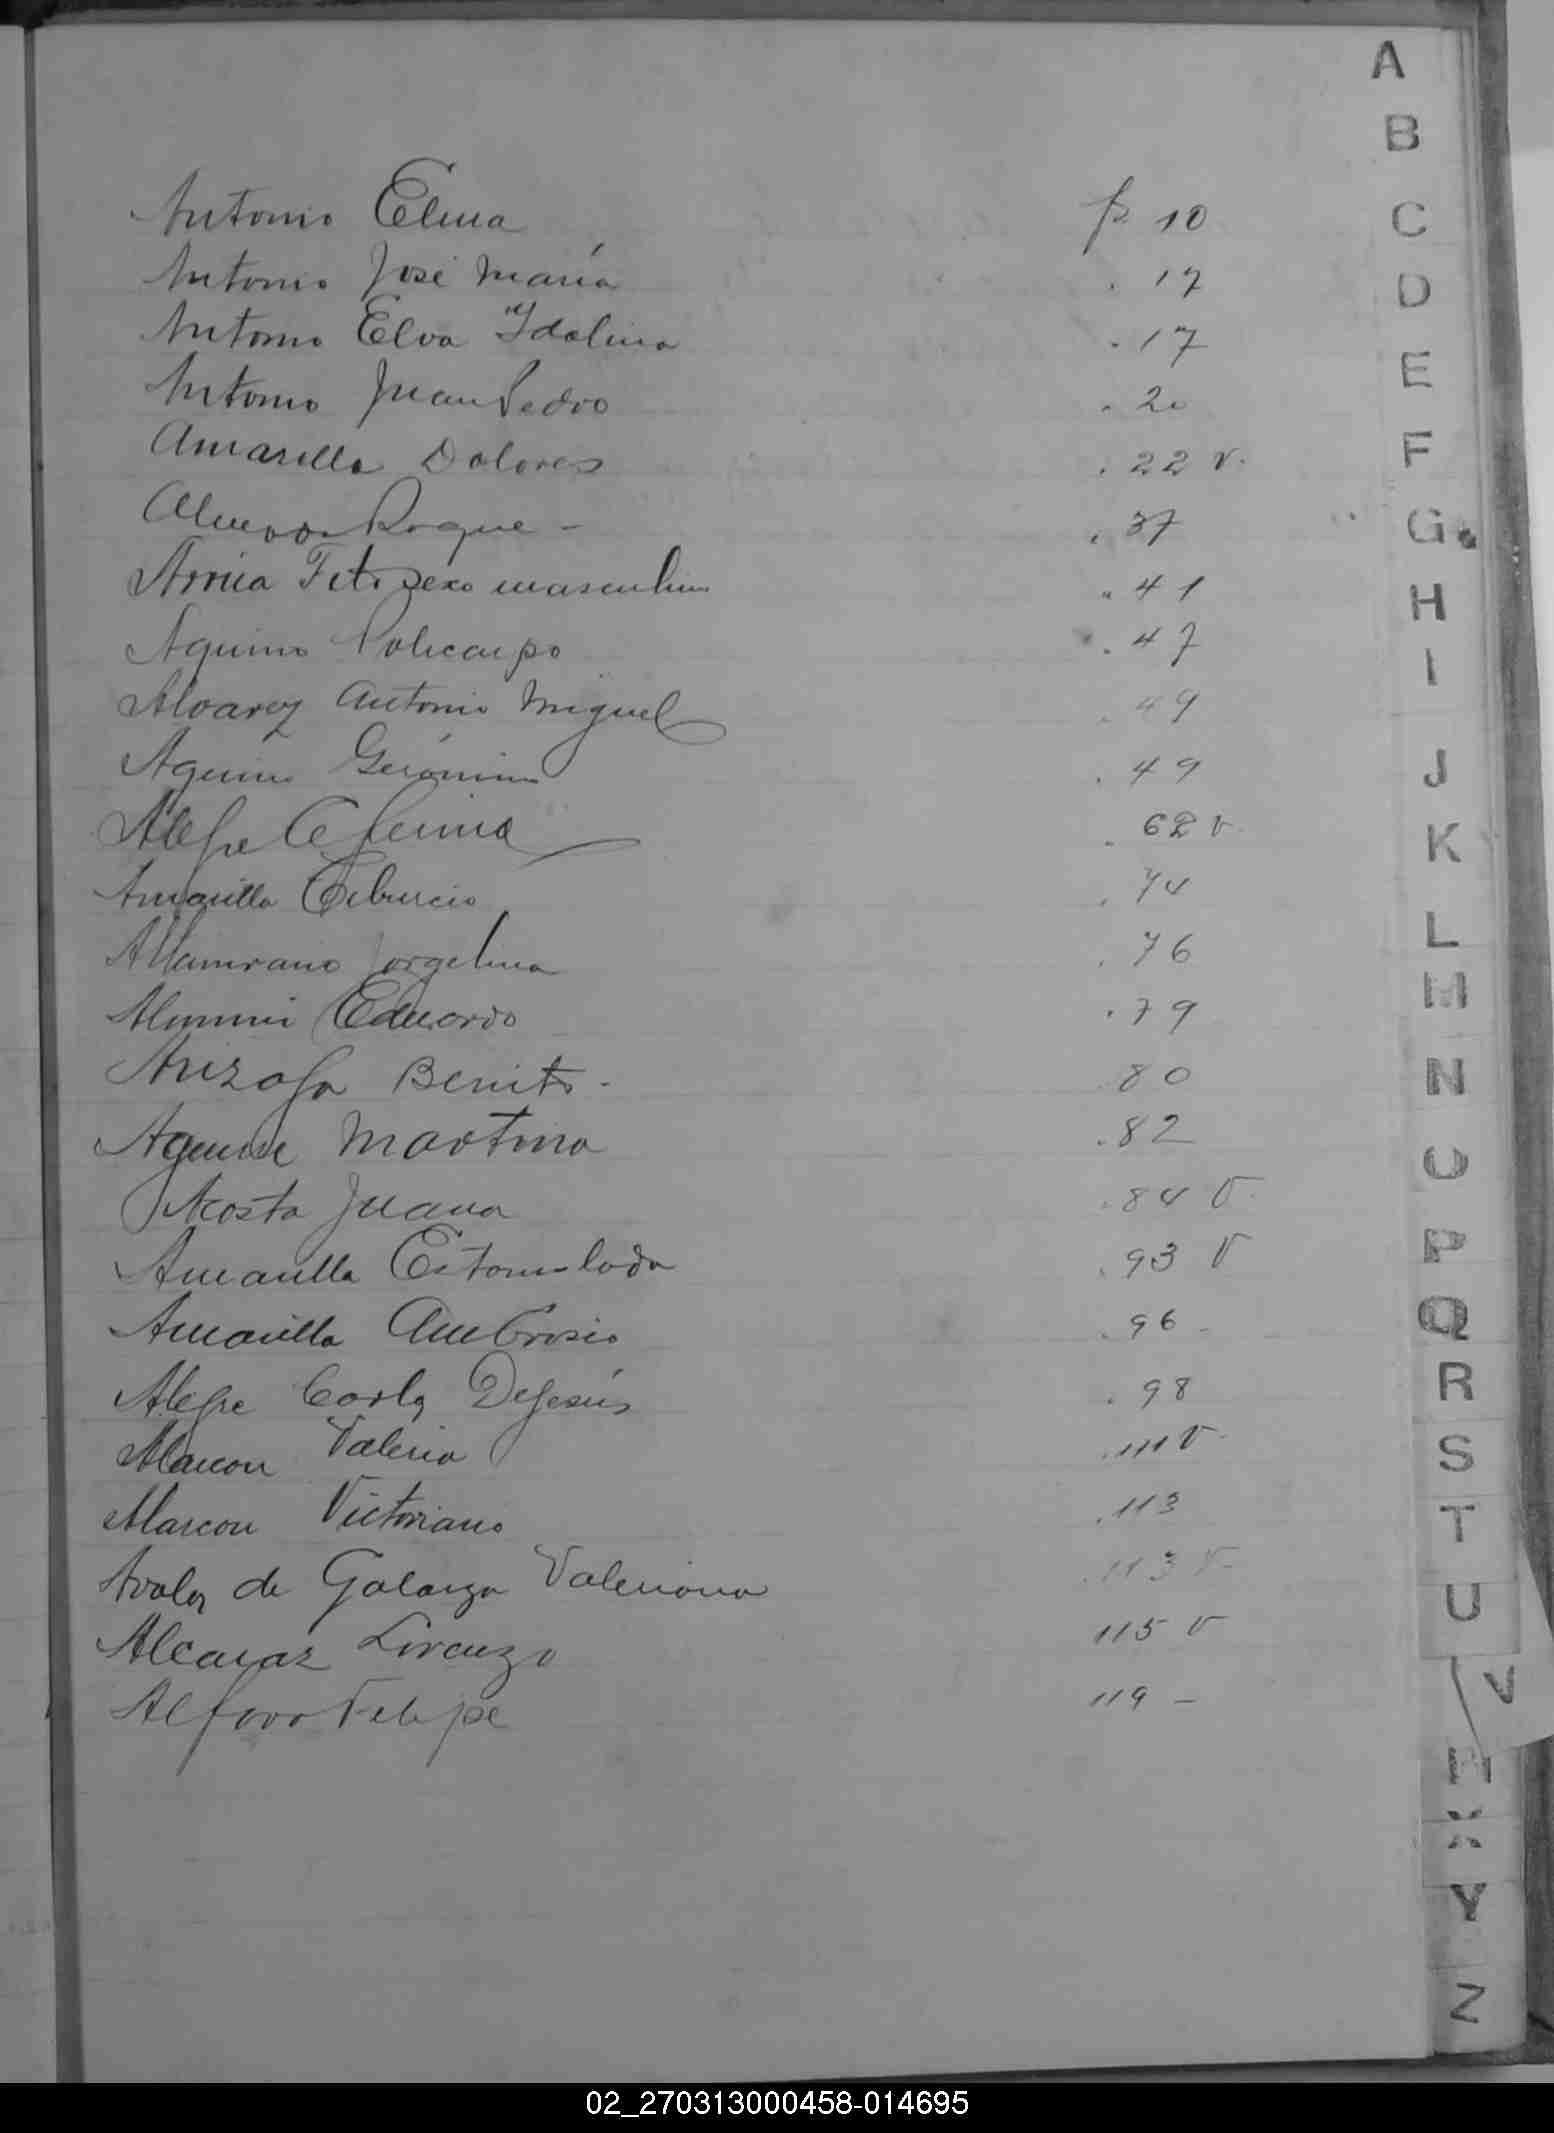 Antonio Elina fs 10
Antonio José María . 17
Antonio Elva Ydalina . 17
Antonio Juan Pedro . 20
Amarilla Dolores . 22 v.
Roque - . 37
Arrúa Feto sexo masculino " 41
Aquino Policarpo . 47
Alvarez Antonio Miguel . 49
Aquino Gerónimo . 49
Alegre Ceferina . 62 v.
Amarilla Tiburcio . 74
Altamirano Jorgelina . 76
Eduardo . 79
Benito - 80
Aguirre Martina . 82
Acosta Juana . 84 v.
Amarilla Estanislada . 93 v
Amarilla Ambrosio . 96 -
Alegre Carlos DeJesús . 98
Alarcon Valeria . 111 v.
Alarcon Victoriano . 113
Avalos de Galarza Valeriana . 113 v.
Alcaraz Lorenzo 115 v
Alfaro Felipe 119 -
A
B
C
D
E
F
G
H
I
J
K
L
M
N
O
P
Q
R
S
T
U
V
X
Y
Z
02_270313000458-014695